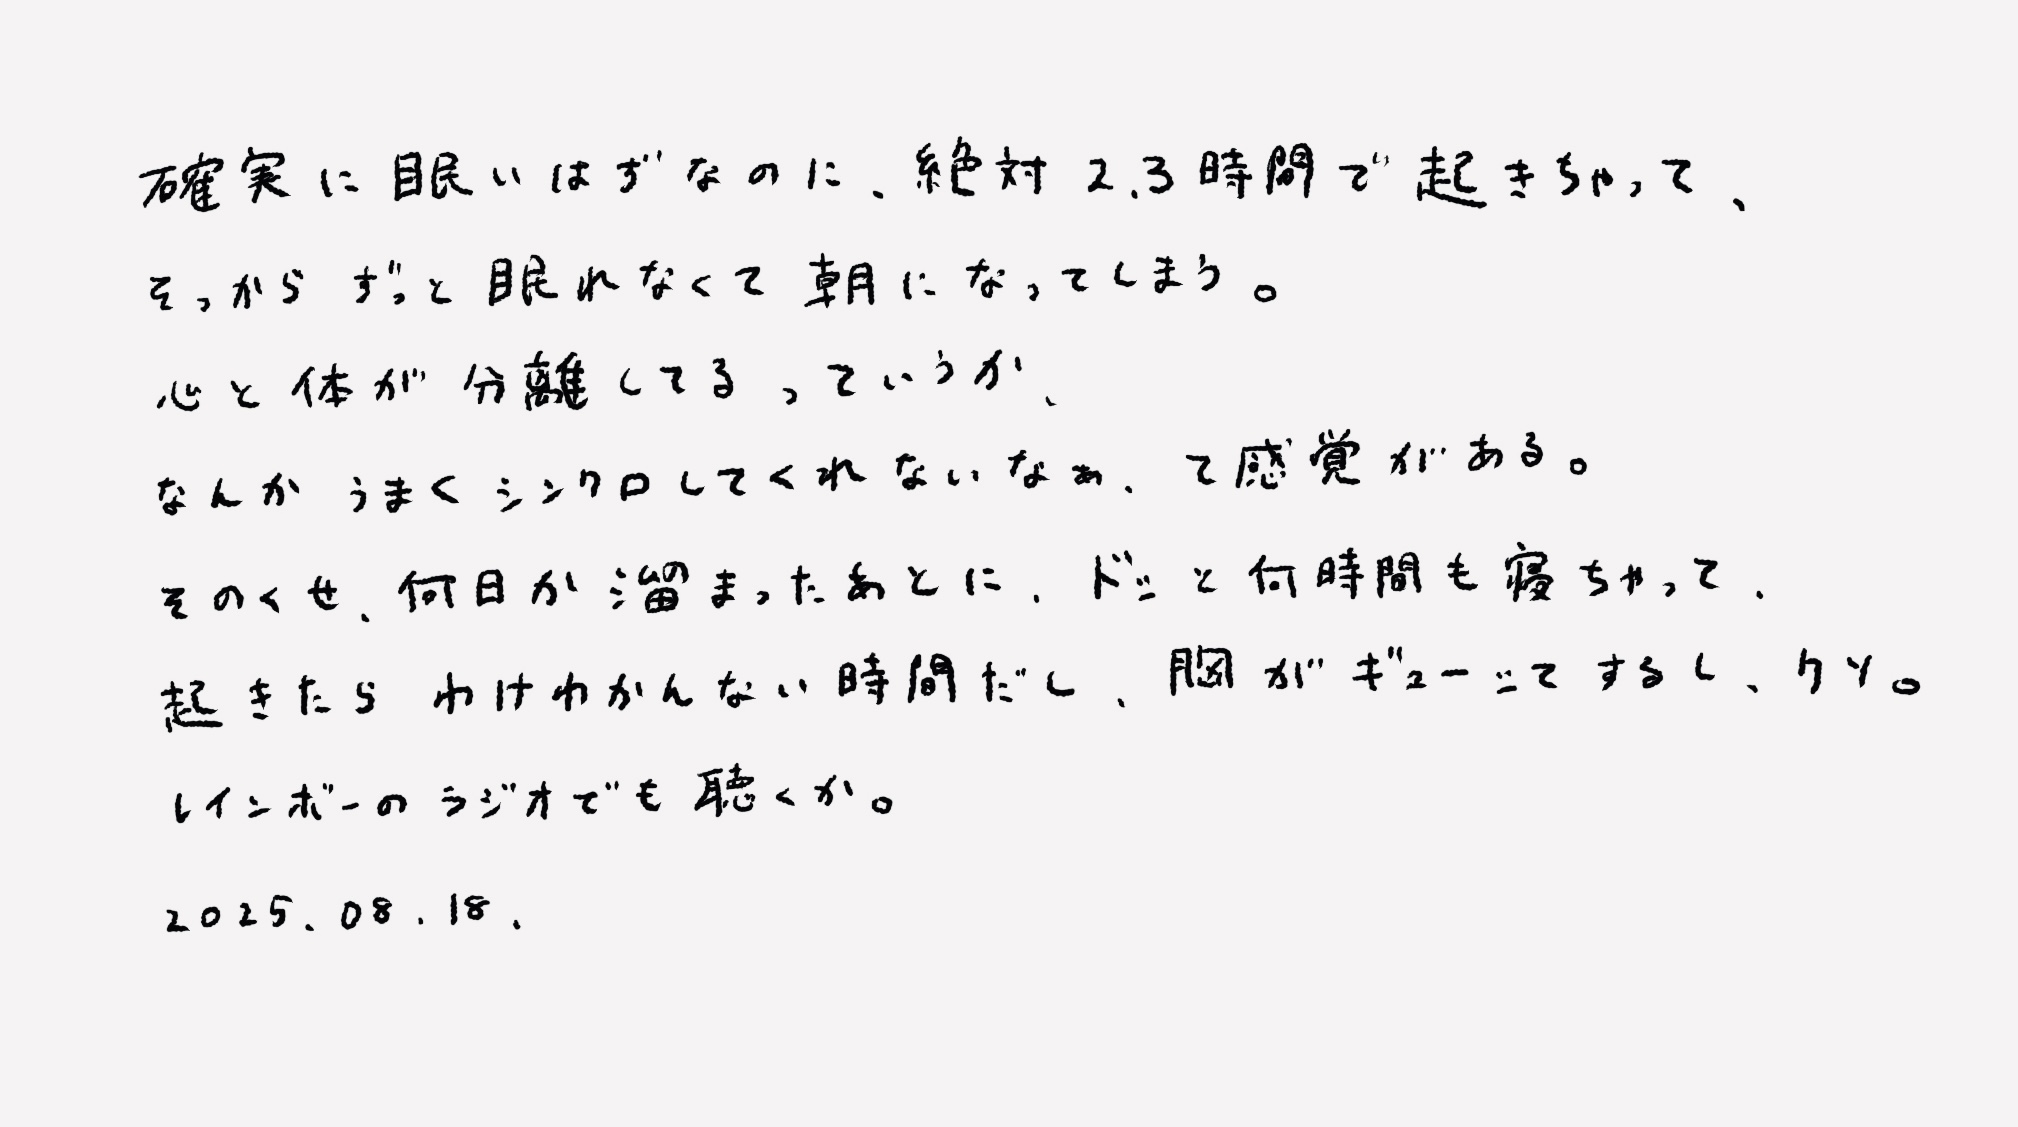 確実に眠いはずなのに、絶対2.3時間で起きちゃって、
そっからずっと眠れなくて朝になってしまう。
心と体が分離してるっていうか、
なんかうまくシンクロしてくれないなぁ、て感覚がある。
そのくせ、何日か溜まったあとに、ドッと何時間も寝ちゃって、
起きたらわけわかんない時間だし、胸がギューッてするし、クソ。
レインボーのラジオでも聴くか。
2025.08.18.